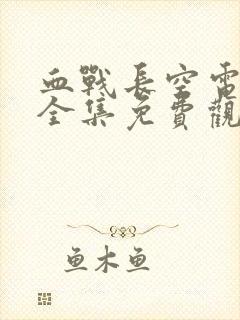 血戰長空電
全集免費觀
鱼木鱼